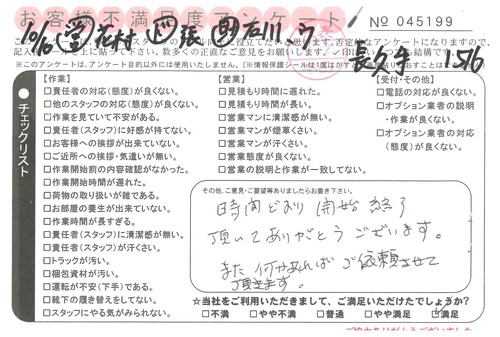 お客様不満足度アンケート
No 045199
10/6 営 花村 張 石川、ウ 長久手 1516
※このアンケートは、アンケート目的以外には使用いたしません。
チェックリスト
【作業】
□責任者の対応(態度)が良くない。
□他のスタッフの対応(態度)が良くない。
□作業を見ていて不安がある。
□責任者(スタッフ)に好感が持てない。
□お客様への挨拶が出来ていない。
□ご近所への挨拶・気遣いが無い。
□作業開始前の内容確認がなかった。
□作業開始時間が遅れた。
□荷物の取り扱いが雑である。
□お部屋の養生が出来ていない。
□作業時間が長すぎる。
□責任者(スタッフ)に清潔感が無い。
□責任者(スタッフ)が汗くさい。
□トラックが汚い。
□梱包資材が汚い。
□運転が不安(下手)である。
□靴下の履き替えをしてない。
□スタッフにやる気がみられない。
【営業】
□見積もり時間に遅れた。
□見積もり時間が長い。
□営業マンに清潔感が無い。
□営業マンが煙草くさい。
□営業マンが汗くさい。
□営業態度が良くない。
□営業の説明と作業が一致してない。
【受付・その他】
□電話の対応が良くない。
□オプション業者の説明・作業が良くない。
□オプション業者の対応(態度)が良くない。
その他、ご意見・ご要望等ありましたらお書き下さい。
時間どおり開始終了
頂いてありがとうございます。
また何かあればご依頼させて
頂きます。
☆当社をご利用いただきまして、ご満足いただけたでしょうか?
□不満 □やや不満 □普通 □やや満足 □満足
ご協力ありがとうございました